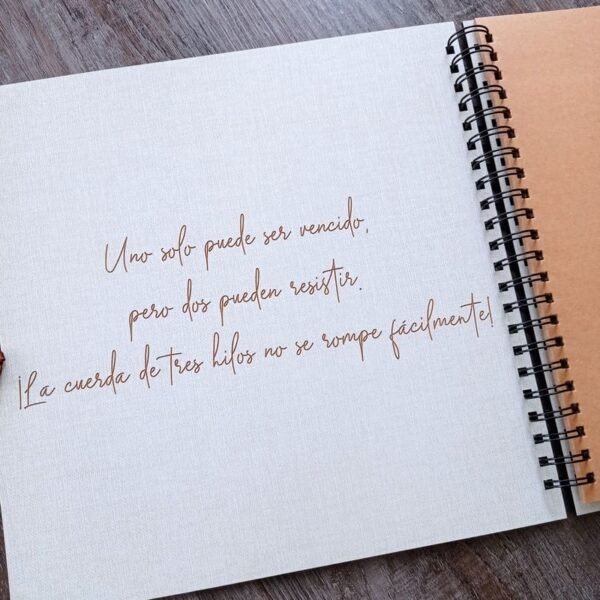 Uno solo puede ser vencido,
pero dos pueden resistir.
¡La cuerda de tres hilos no se rompe fácilmente!